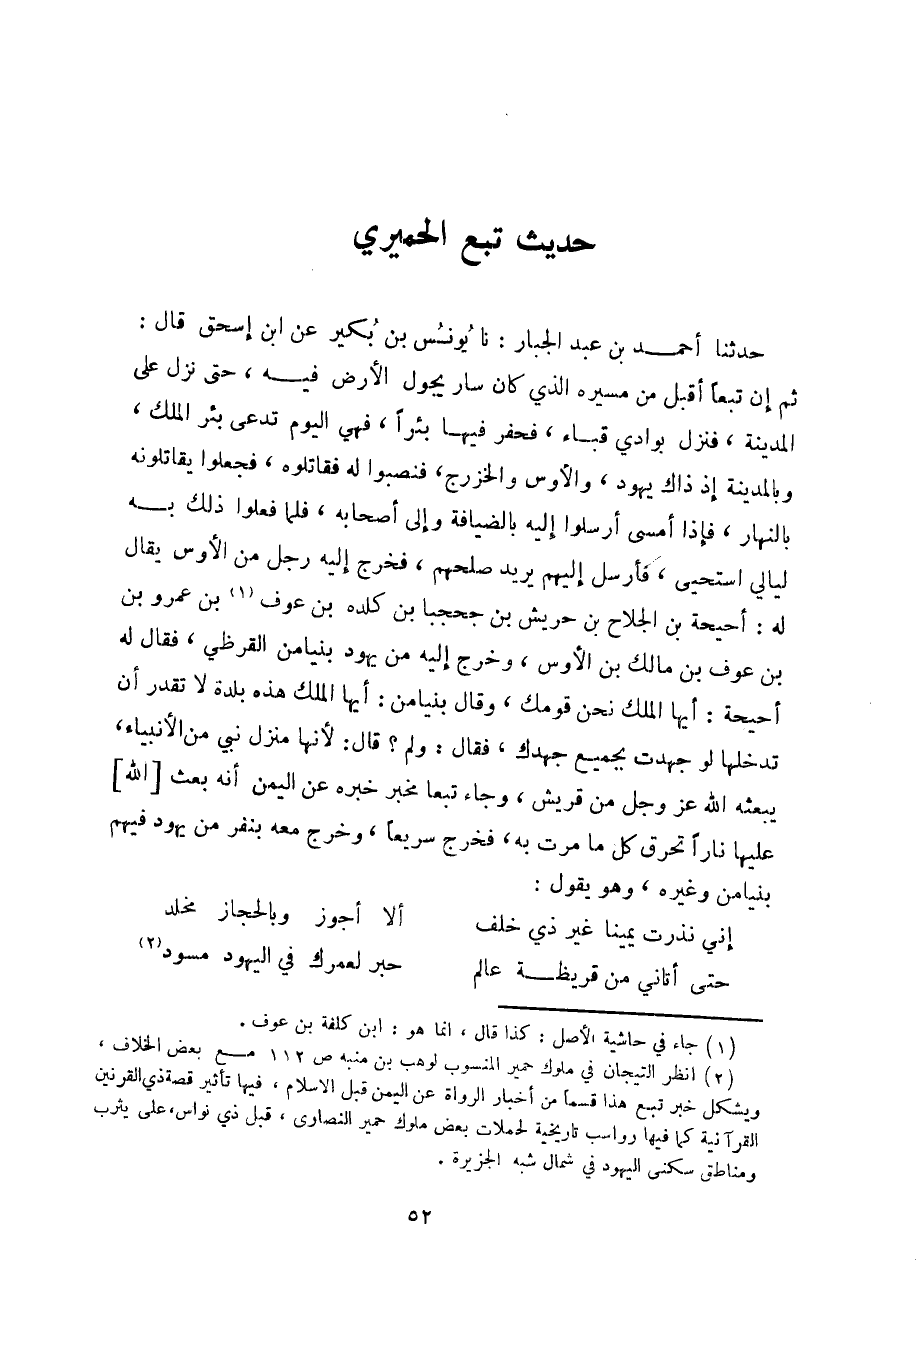 حديث تبع الحميري
حدثنا أحمد بن عبد الجبار : نا يُونُس بن بُكير عن ابن إسحق قال :
ثم إن تبعاً أقبل من مسيره الذي كان سار يجول الأرض فيه ، حتى نزل على
المدينة ، فنزل بوادي قباء ، فحفر فيها بئراً ، فهي اليوم تدعى بئر الملك ،
وبالمدينة إذ ذاك يهود ، والأوس والخزرج، فنصبوا له فقاتلوه ، فجعلوا يقاتلونه
بالنهار ، فإذا أمسى أرسلوا إليه بالضيافة وإلى أصحابه ، فلما فعلوا ذلك به
ليالي استحيى ، فأرسل إليهم يريد صلحهم ، فخرج إليه رجل من الأوس يقال
له : أحيحة بن الجلاح بن حريش بن جحجبا بن كلده بن عوف (١) بن عمرو بن
بن عوف بن مالك بن الأوس ، وخرج إليه من يهود بنيامن القرظي ، فقال له
أحيحة : أيها الملك نحن قومك ، وقال بنيامن : أيها الملك هذه بلدة لا تقدر أن
تدخلها لو جهدت بجميع جهدك ، فقال : ولم ؟ قال: لأنها منزل نبي من الأنبياء،
يبعثه الله عز وجل من قريش ، وجاء تبعا مخبر خبره عن اليمن أنه بعث [الله]
عليها ناراً تحرق كل ما مرت به، فخرج سريعاً ، وخرج معه بنفر من يهود فيهم
بنيامن وغيره ، وهو يقول :
إني نذرت يمينا غير ذي خلف ألا أجوز وبالحجاز مخلد
حتى أتاني من قريظة عالم حبر لعمرك في اليهود مسود(٢)
(١) جاء في حاشية الأصل : كذا قال ، انما هو : ابن كلفة بن عوف .
(٢) انظر التيجان في ملوك حمير المنسوب لوهب بن منبه ص ١١٢ مع بعض الخلاف ،
ويشكل خبر تبع هذا قسماً من أخبار الرواة عن اليمن قبل الاسلام ، فيها تأثير قصة ذي القرنين
القرآنية كما فيها رواسب تاريخية لحملات بعض ملوك حمير النصارى ، قبل ذي نواس، على يثرب
ومناطق سكنى اليهود في شمال شبه الجزيرة .
٥٢